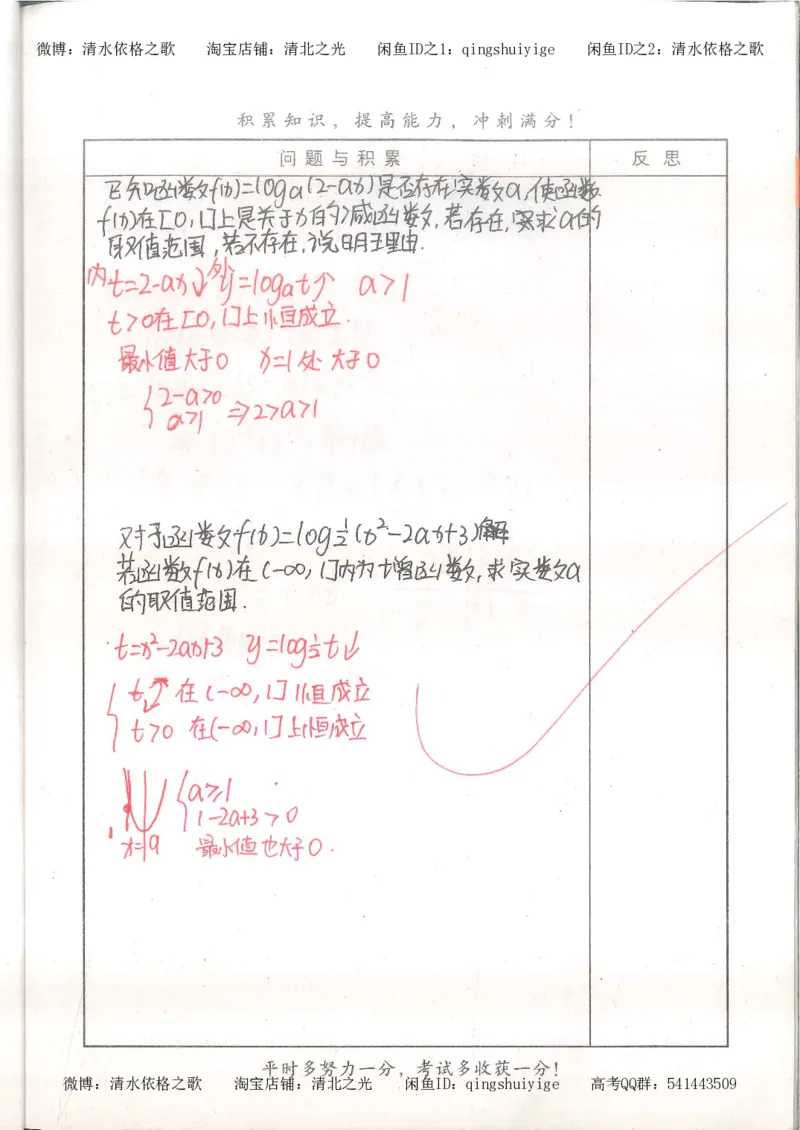 微博：清水依格之歌 淘宝店铺：清北之光 闲鱼ID之1：qingshuiyige 闲鱼ID之2：清水依格之歌
积累知识，提高能力，冲刺满分！
问题与积累 反思
已知函数f(x)=loga(2-ax)是否存在实数a,使函数
f(x)在[0,1]上是关于x的减函数,若存在,求a的
取值范围,若不存在,说明理由.
内t=2-ax↓ 外y=logat↑ a>1
t>0在[0,1]上恒成立.
最小值大于0 x=1处大于0
{2-a>0
a>1 ⇒2>a>1
对于函数f(x)=log½(x²-2ax+3)解
若函数f(x)在(-∞,1]内为增函数,求实数a
的取值范围.
t=x²-2ax+3 y=log½t↓
{t↓在(-∞,1]恒成立
t>0 在(-∞,1]上恒成立
{a≥1
1-2a+3>0
1 x=a 最小值也大于0.
平时多努力一分，考试多收获一分！
微博：清水依格之歌 淘宝店铺：清北之光 闲鱼ID：qingshuiyige 高考QQ群：541443509